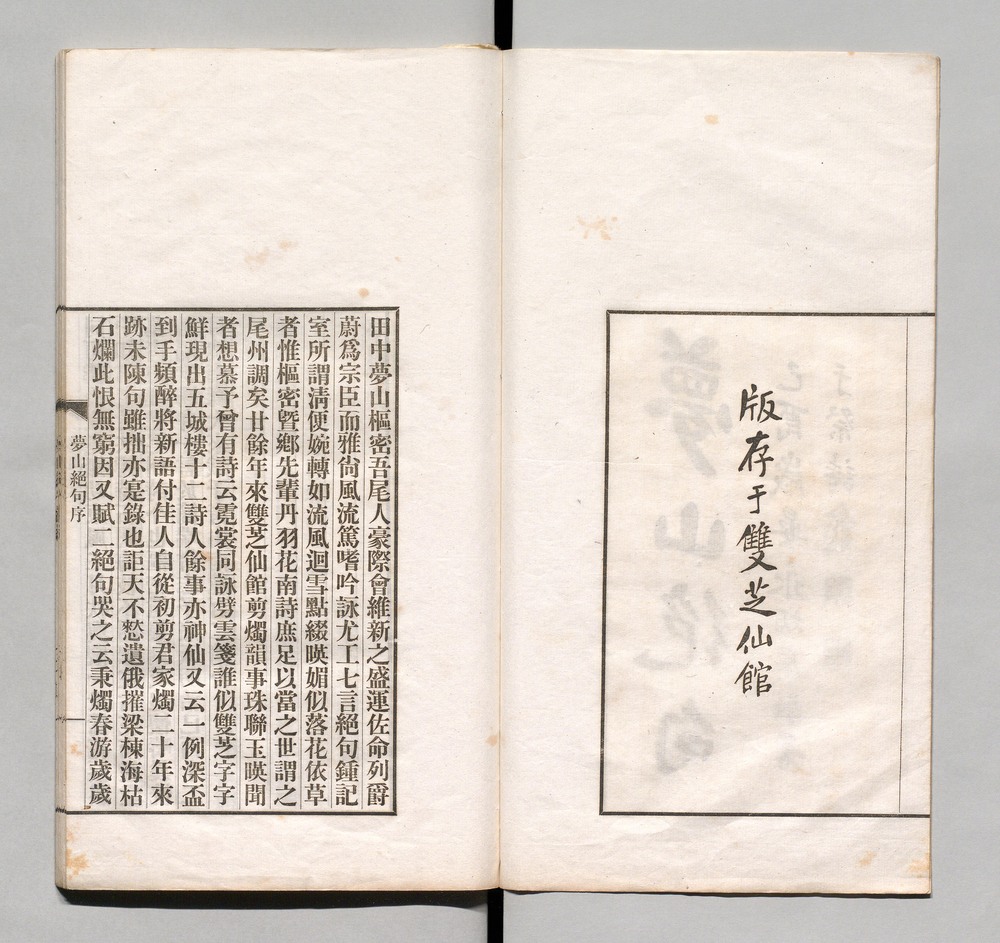 版存于雙芝仙館
田中夢山樞密吾尾人豪際會維新之盛運佐命列爵
蔚爲宗臣而雅尙風流篤嗜吟詠尤工七言絕句鍾記
室所謂淸便婉轉如流風迴雪點綴暎媚似落花依草
者惟樞密曁鄕先輩丹羽花南詩庶足以當之世謂之
尾州調矣廿餘年來雙芝仙館剪燭韻事珠聯玉暎聞
者想慕予曾有詩云霓裳同詠劈雲箋誰似雙芝字字
鮮現出五城樓十二詩人餘事亦神仙又云一例深盃
到手頻醉將新語付佳人自從初剪君家燭二十年來
跡未陳句雖拙亦寔錄也詎天不憖遺俄摧梁棟海枯
石爛此恨無窮因又賦二絕句哭之云秉燭春游歲歲
夢山絕句序